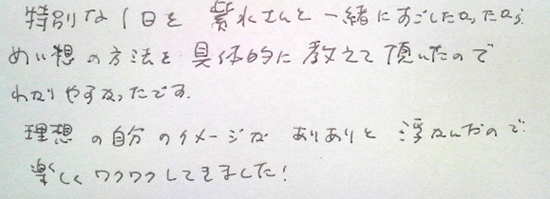 特別な1日を 紫水さんと一緒にすごしたかったから
めい想の方法を具体的に教えて頂いたので
わかりやすかったです。
理想の自分のイメージが ありありと 浮かんだので
楽しくワクワクしてきました!